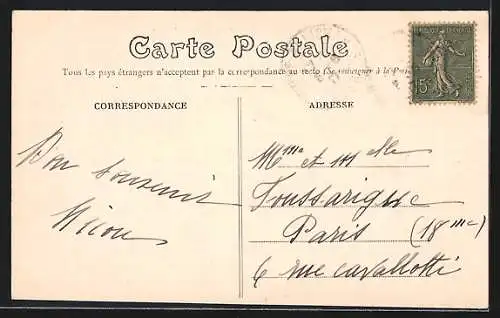 Carte Postale
Tous les pays étrangers n'acceptent pas la correspondance au recto (Se renseigner à la Poste
CORRESPONDANCE
ADRESSE
15c
Bon souvenir
Nicou
Mme et Mlle
Toussarigue
Paris (18me)
6 rue cavallotti